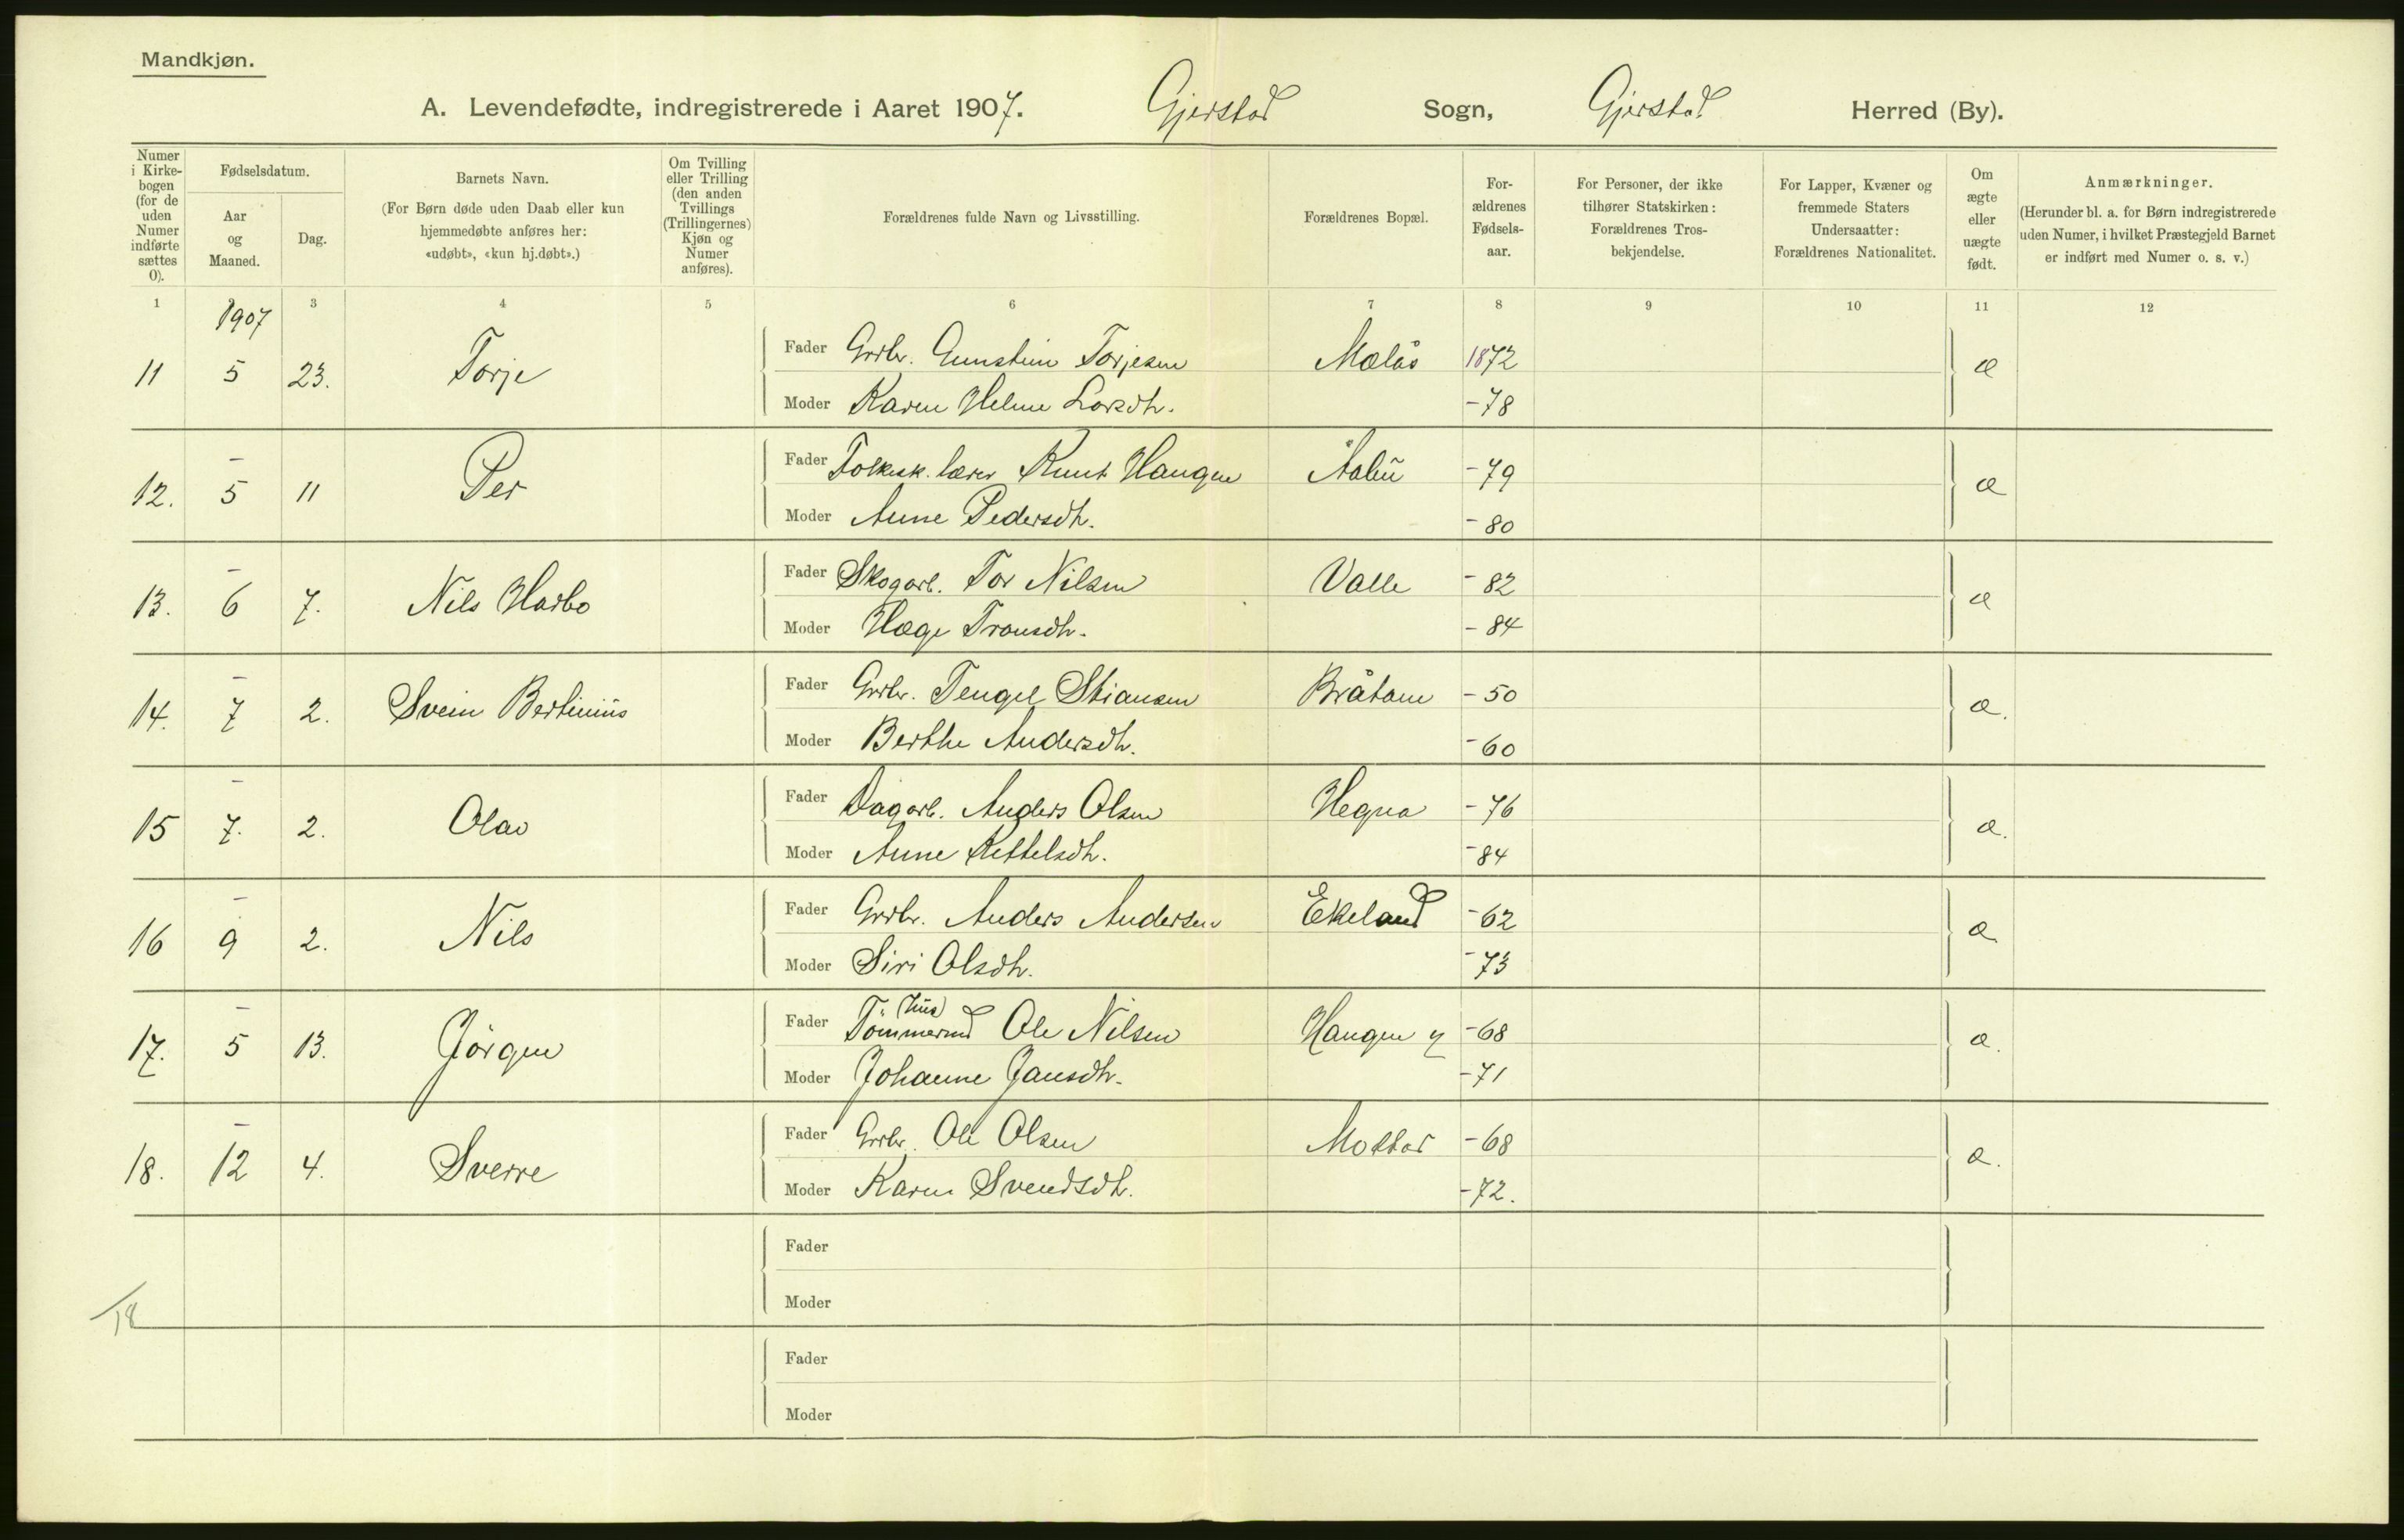 Mandkjøn.
A. Levendefødte, indregistrerede i Aaret 1907. Gjerstad Sogn, Gjerstad Herred (By).
Numer i Kirke-bogen (for de uden Numer indførte sættes 0).
Fødselsdatum.
Aar og Maaned.
Dag.
Barnets Navn.
(For Børn døde uden Daab eller kun hjemmedøbte anføres her: «udøbt», «kun hj.døbt».)
Om Tvilling eller Trilling (den anden Tvillings (Trillingernes) Kjøn og Numer anføres).
Forældrenes fulde Navn og Livsstilling.
Forældrenes Bopæl.
For-ældrenes Fødsels-aar.
For Personer, der ikke tilhører Statskirken: Forældrenes Tros-bekjendelse.
For Lapper, Kvæner og fremmede Staters Undersaatter: Forældrenes Nationalitet.
Om ægte eller uægte født.
Anmærkninger.
(Herunder bl. a. for Børn indregistrerede uden Numer, i hvilket Præstegjeld Barnet er indført med Numer o. s. v.)
1 3 4 5 6 7 8 9 10 11 12
1907
11 5 23. Torje Fader Grbr. Gunstein Torjesen Molås 1872 æ
Moder Karen Helene Larsdtr. -78
12. - 5 11 Per Fader Folkesk. lærer Knut Haugen Aabu -79 æ
Moder Anne Pedersdtr. -80
13. - 6 7. Nils Harbo Fader Skogarb. Tor Nilsen Valle -82 æ
Moder Hæge Tronsdtr. -84
14. - 7 2. Svein Bertinius Fader Grbr. Tengel Stiansen Bråtane -50 æ.
Moder Berthe Andersdtr. -60
15 - 7. 2. Olav Fader Dagarb. Anders Olsen Hegna -76 æ.
Moder Anne Kettelsdtr. -84
16 - 9 2. Nils Fader Grbr. Anders Andersen Ekeland -62 æ.
Moder Siri Olsdtr. -73
17. - 5 13. Jörgen Fader Tömmermd Ole Nilsen Haugen y -68 æ.
Moder Johanne Jansdtr. -71
18. - 12 4. Sverre Fader Grbr. Ole Olsen -68 æ.
Moder Karen Svendsdt. -72.
Fader
Moder
18
Fader
Moder